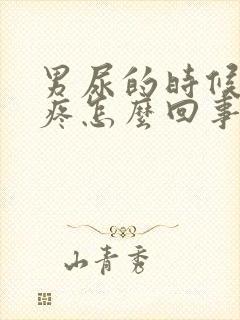 男尿的时候
疼怎麼回事
山青秀